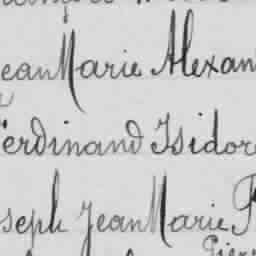 eanMarie Alexan
erdinand Isidor
seph JeanMarie F
Pierr